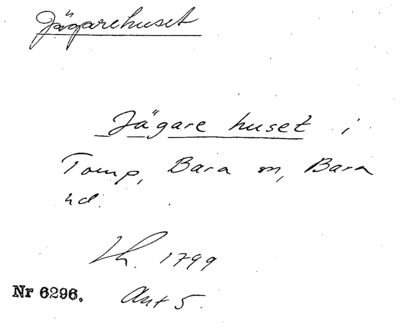 Jägarehuset
Jägare huset i
Torup, Bara sn, Bara
hd.
Lh. 1799
Nr 6296. Akt 5.